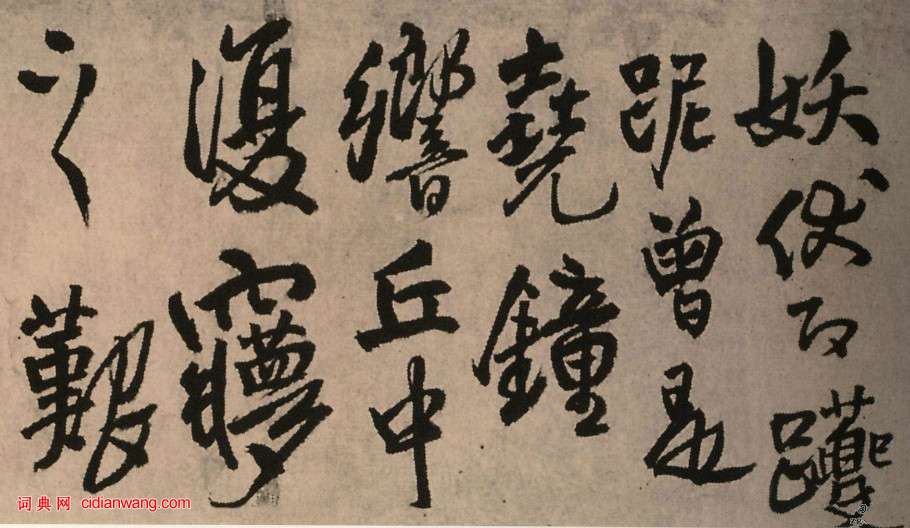 妖伏百躨
跜曾是
堯鐘
響丘中
復㝱
之艱
词典网 cidianwang.com